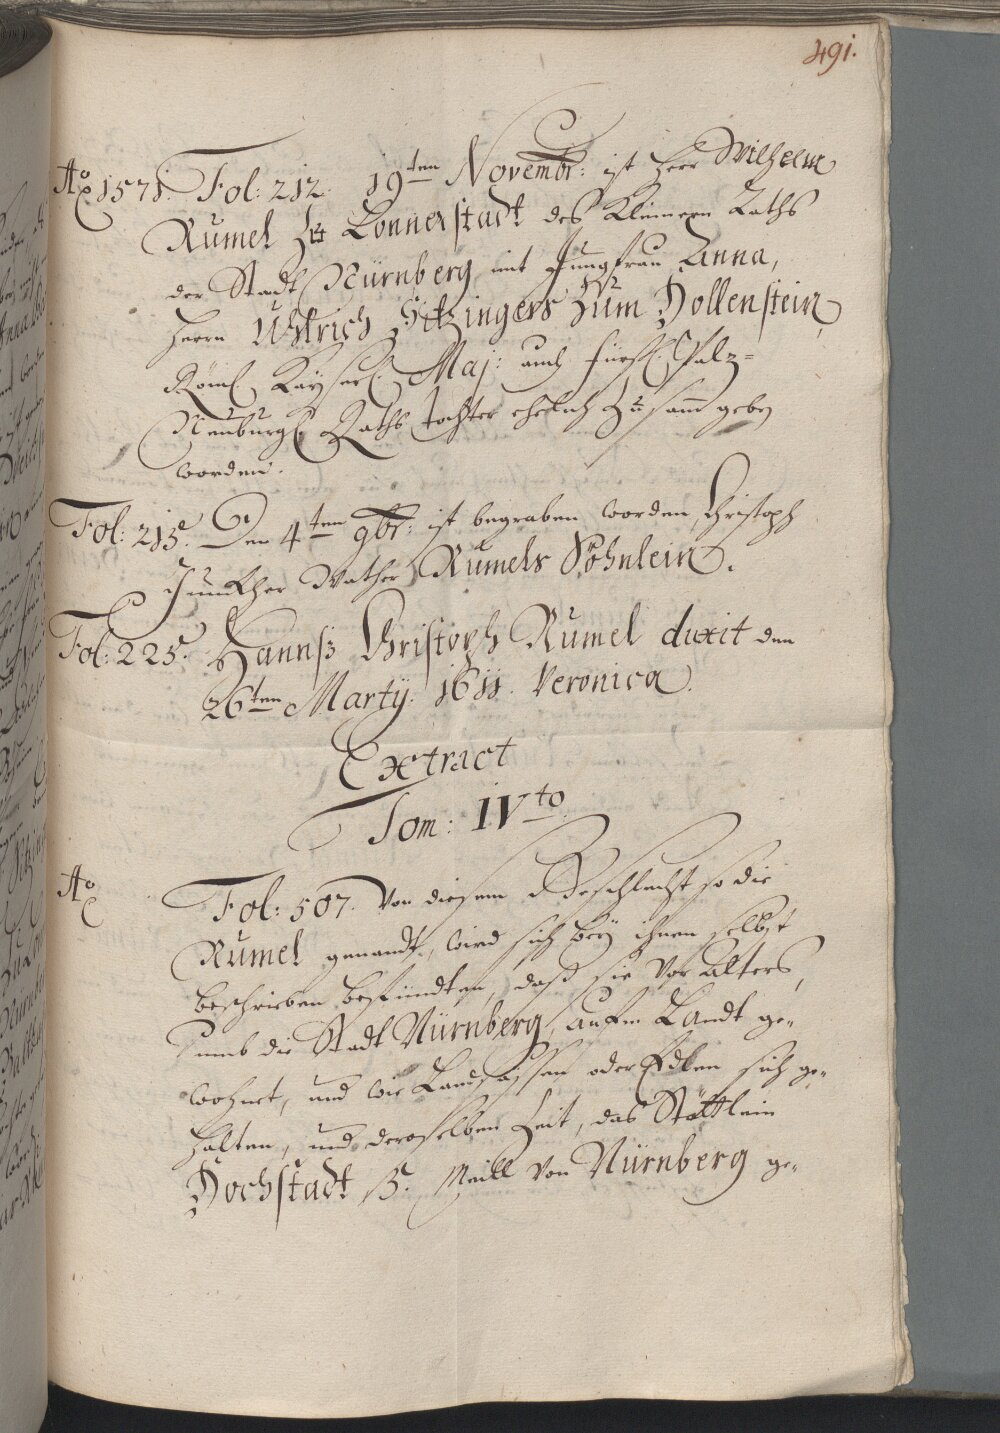 491.
Ao 1571. Fol: 212. 19ten Novembr: ist Herr Wilhelm
Rumel zu Lonnerstadt des Kleinern Raths
der Stadt Nürnberg mit Jungfrau Anna,
Herrn Ulrich Sitzingers zum Hollenstein
Röml. Kayserl. Maj: auch fürstl. Pfalz-
Neuburgl. Raths Tochter ehelich zusamm geben
worden.
Fol: 215. Den 4ten 9br: ist begraben worden, Christoph
Junckher Rumels Söhnlein.
Fol: 225. Hannß Christoph Rumel duxit den
26ten Martÿ. 1611. Veronica.
Extract
Tom: IVto.
Ao
Fol: 507. Von diesem Geschlecht so die
Rumel genandt, wird sich beÿ ihnen selbst
beschrieben befindten, daß sie vor Alters,
umb die Stadt Nürnberg, aufm Landt ge-
wohnet, und wie Landsassen oder Edlen sich ge-
halten, und derselben Zeit, das Stättlein
Hochstadt 5. Meill von Nürnberg ge-